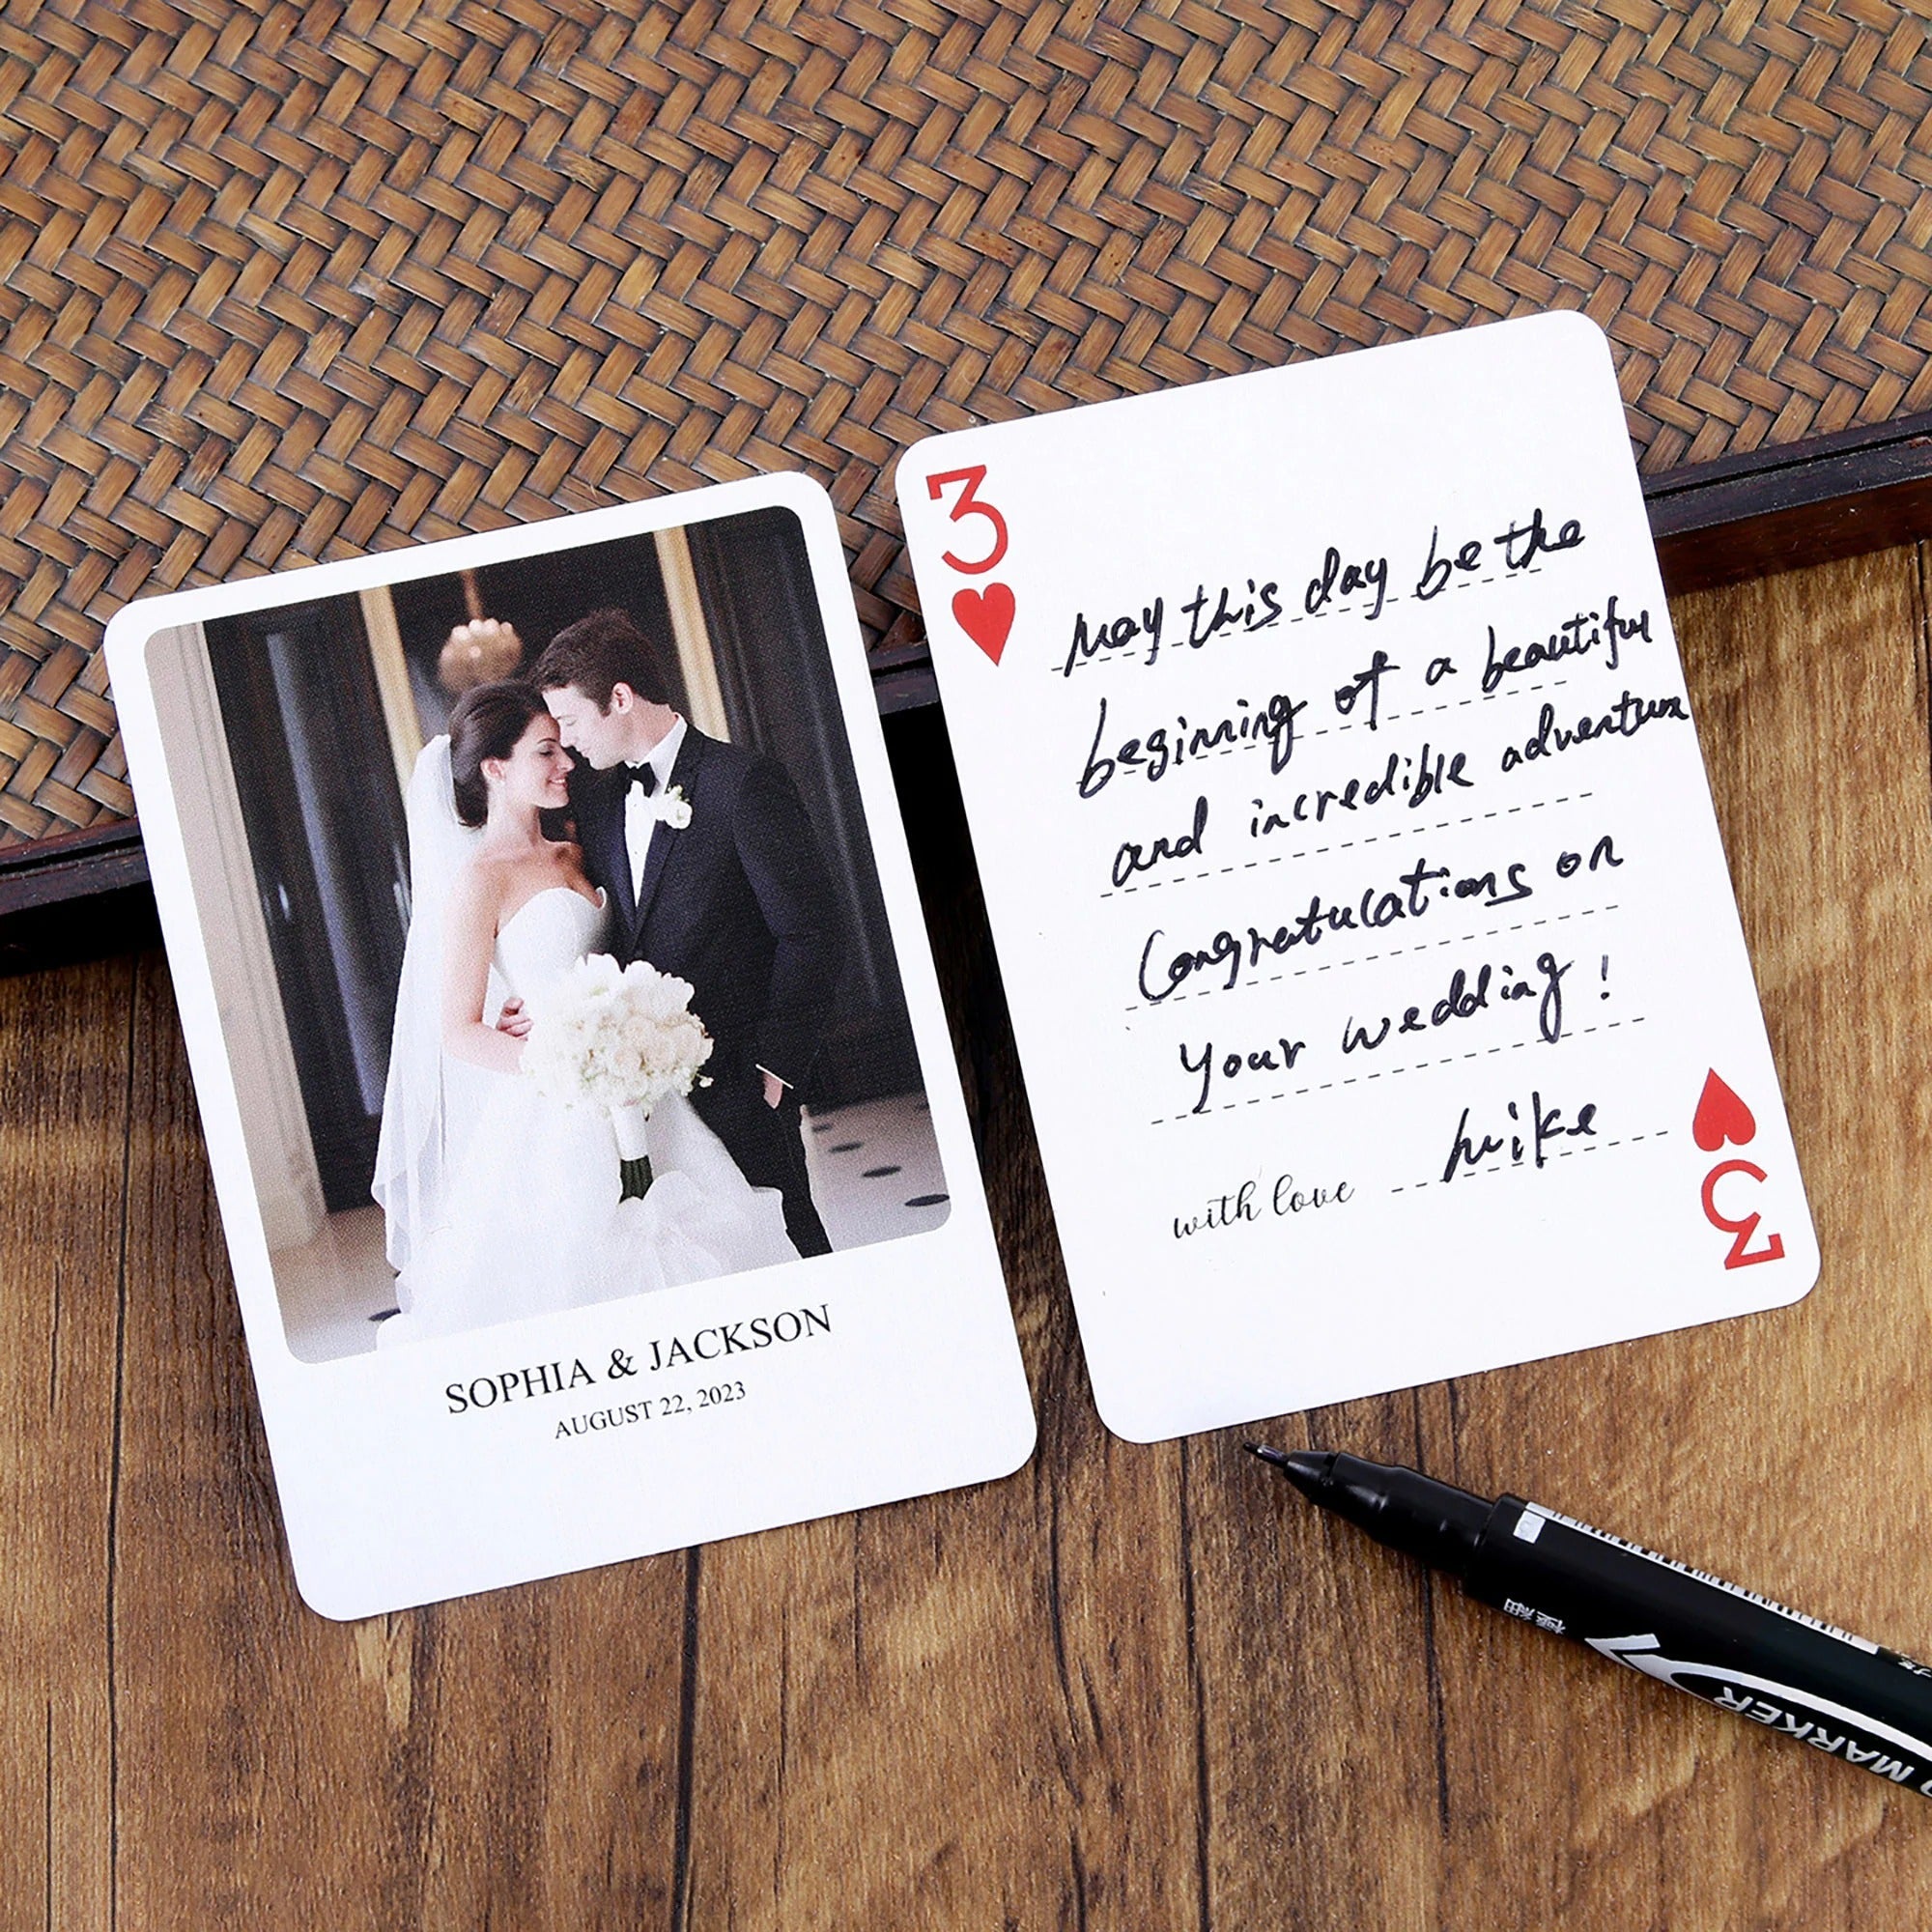 SOPHIA & JACKSON
AUGUST 22, 2023
3
May this day be the
beginning of a beautiful
and incredible adventure
Congratulations on
your wedding!
with love Mike
3
極細
MARKER